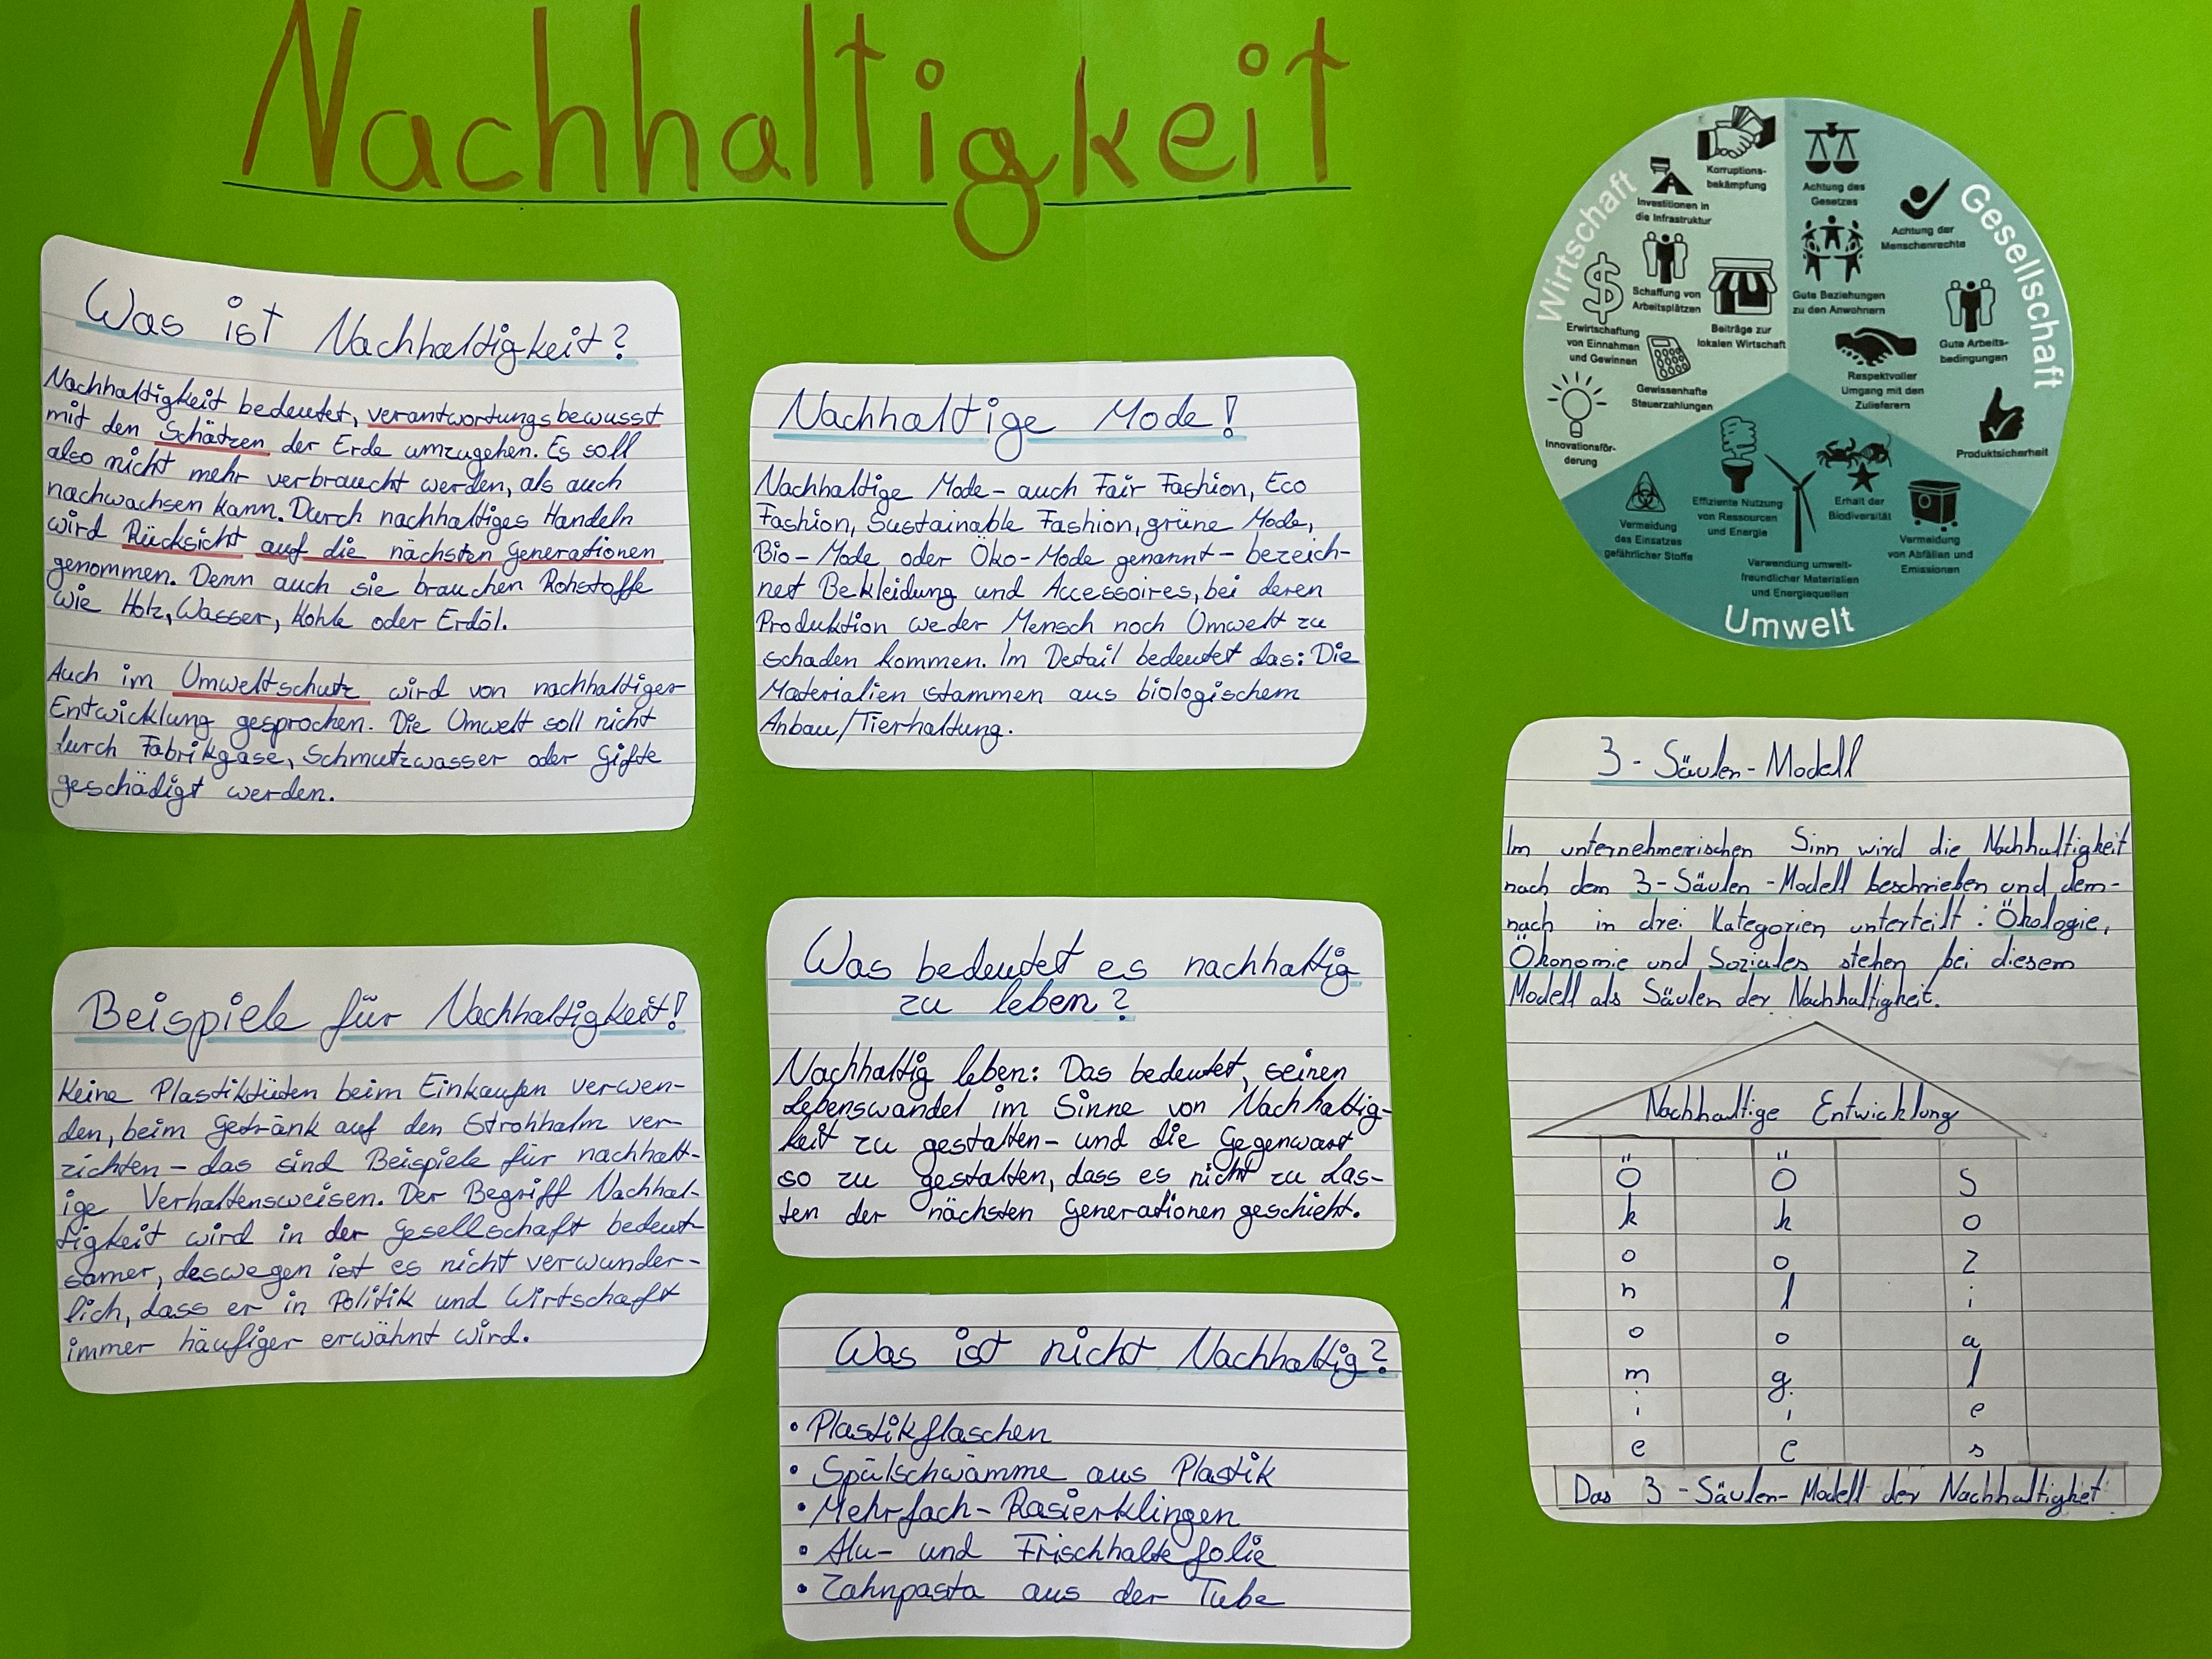 Nachhaltigkeit
Was ist Nachhaltigkeit?
Nachhaltigkeit bedeutet, verantwortungsbewusst
mit den Schätzen der Erde umzugehen. Es soll
also nicht mehr verbraucht werden, als auch
nachwachsen kann. Durch nachhaltiges Handeln
wird Rücksicht auf die nächsten Generationen
genommen. Denn auch sie brauchen Rohstoffe
wie Holz, Wasser, Kohle oder Erdöl.
Auch im Umweltschutz wird von nachhaltiger
Entwicklung gesprochen. Die Umwelt soll nicht
durch Fabrikgase, Schmutzwasser oder Gifte
geschädigt werden.
Beispiele für Nachhaltigkeit!
Keine Plastiktüten beim Einkaufen verwen-
den, beim Getränk auf den Strohhalm ver-
zichten - das sind Beispiele für nachhalt-
ige Verhaltensweisen. Der Begriff Nachhal-
tigkeit wird in der Gesellschaft bedeut-
samer, deswegen ist es nicht verwunder-
lich, dass er in Politik und Wirtschaft
immer häufiger erwähnt wird.
Nachhaltige Mode!
Nachhaltige Mode - auch Fair Fashion, Eco
Fashion, Sustainable Fashion, grüne Mode,
Bio-Mode oder Öko-Mode genannt - bezeich-
net Bekleidung und Accessoires, bei deren
Produktion weder Mensch noch Umwelt zu
schaden kommen. Im Detail bedeutet das: Die
Materialien stammen aus biologischem
Anbau/Tierhaltung.
Was bedeutet es nachhaltig
zu leben?
Nachhaltig leben: Das bedeutet, seinen
Lebenswandel im Sinne von Nachhaltig-
keit zu gestalten - und die Gegenwart
so zu gestalten, dass es nicht zu Las-
ten der nächsten Generationen geschieht.
Was ist nicht Nachhaltig?
• Plastikflaschen
• Spülschwämme aus Plastik
• Mehrfach-Rasierklingen
• Alu- und Frischhaltefolie
• Zahnpasta aus der Tube
Wirtschaft
Korruptions-
bekämpfung
Investitionen in
die Infrastruktur
Schaffung von
Arbeitsplätzen
Erwirtschaftung
von Einnahmen
und Gewinnen
Beiträge zur
lokalen Wirtschaft
Gewissenhafte
Steuerzahlungen
Innovationsför-
derung
Gesellschaft
Achtung des
Gesetzes
Achtung der
Menschenrechte
Gute Beziehungen
zu den Anwohnern
Gute Arbeits-
bedingungen
Respektvoller
Umgang mit den
Zulieferern
Produktsicherheit
Umwelt
Vermeidung
des Einsatzes
gefährlicher Stoffe
Effiziente Nutzung
von Ressourcen
und Energie
Erhalt der
Biodiversität
Vermeidung
von Abfällen und
Emissionen
Verwendung umwelt-
freundlicher Materialien
und Energiequellen
3-Säulen-Modell
Im unternehmerischen Sinn wird die Nachhaltigkeit
nach dem 3-Säulen-Modell beschrieben und dem-
nach in drei Kategorien unterteilt: Ökologie,
Ökonomie und Soziales stehen bei diesem
Modell als Säulen der Nachhaltigkeit.
Nachhaltige Entwicklung
Ökonomie
Ökologie
Soziales
Das 3-Säulen-Modell der Nachhaltigkeit